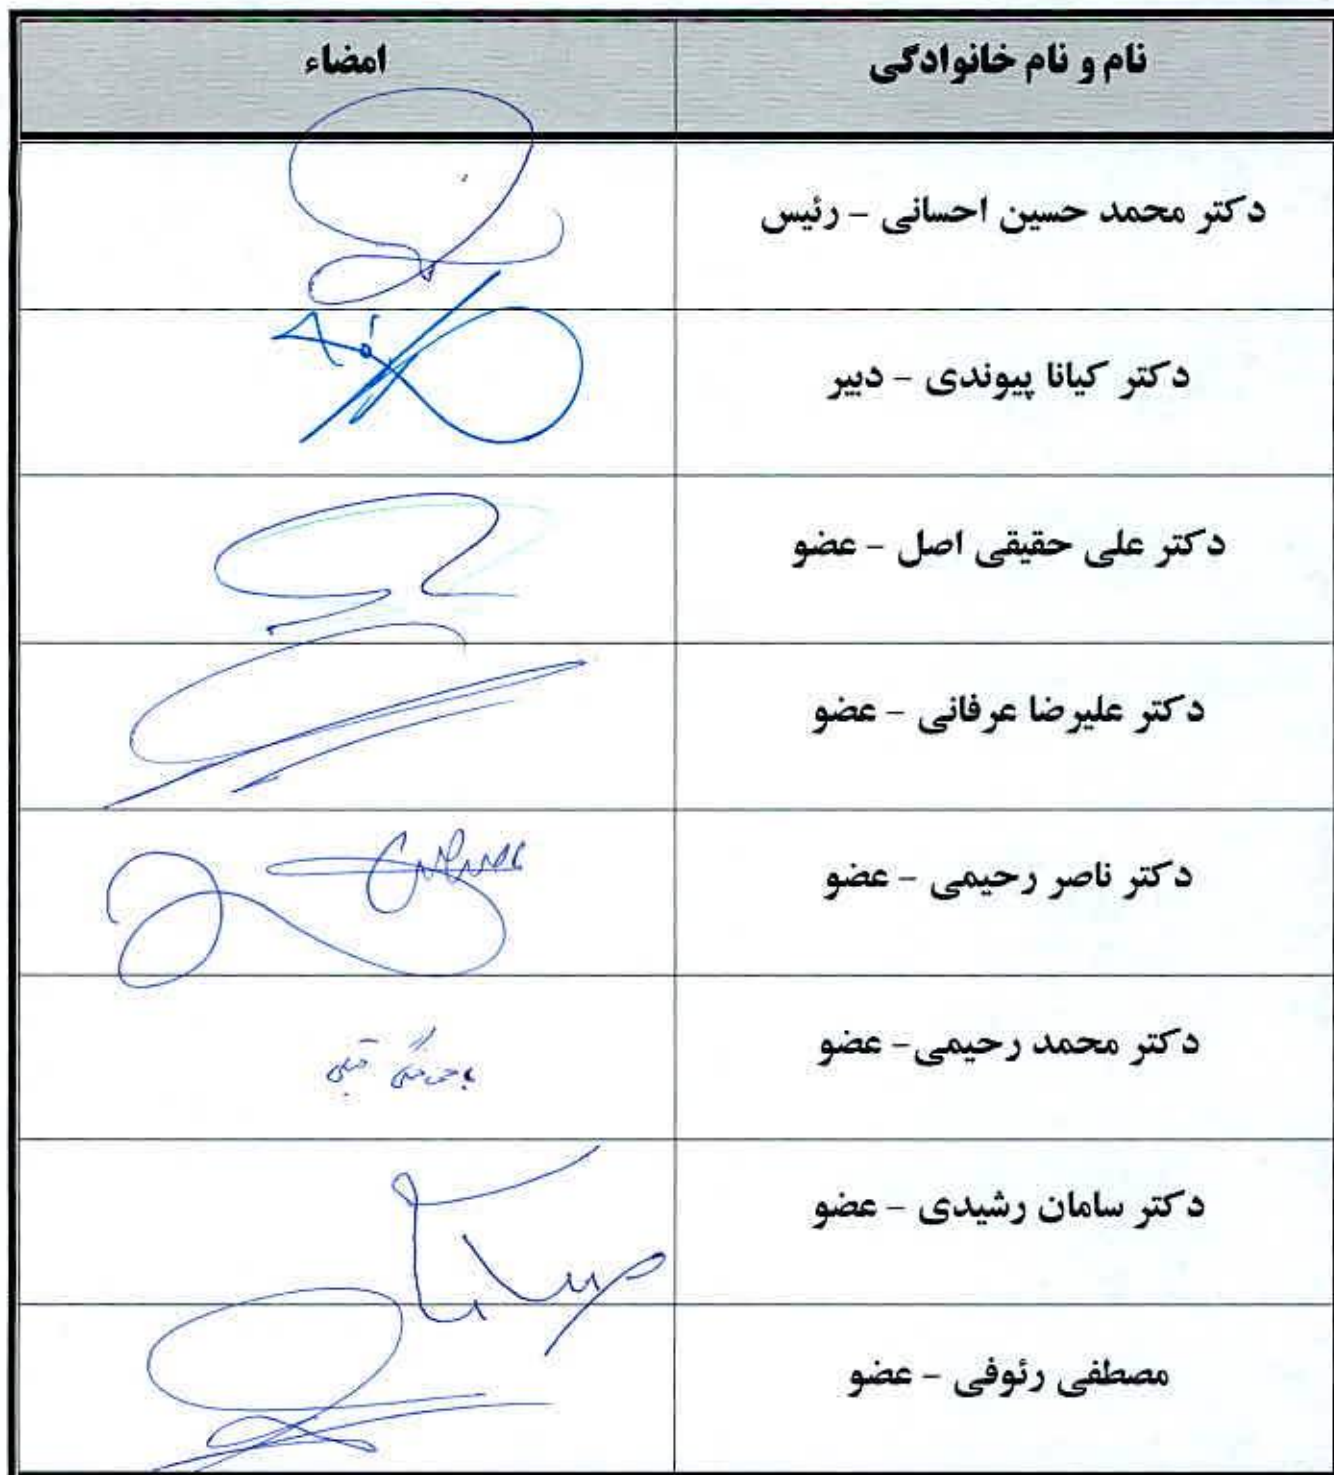 نام و نام خانوادگی
امضاء
دکتر محمد حسین احسانی - رئیس
دکتر کیانا پیوندی - دبیر
دکتر علی حقیقی اصل - عضو
دکتر علیرضا عرفانی - عضو
دکتر ناصر رحیمی - عضو
دکتر محمد رحیمی- عضو
دکتر سامان رشیدی - عضو
مصطفی رئوفی - عضو